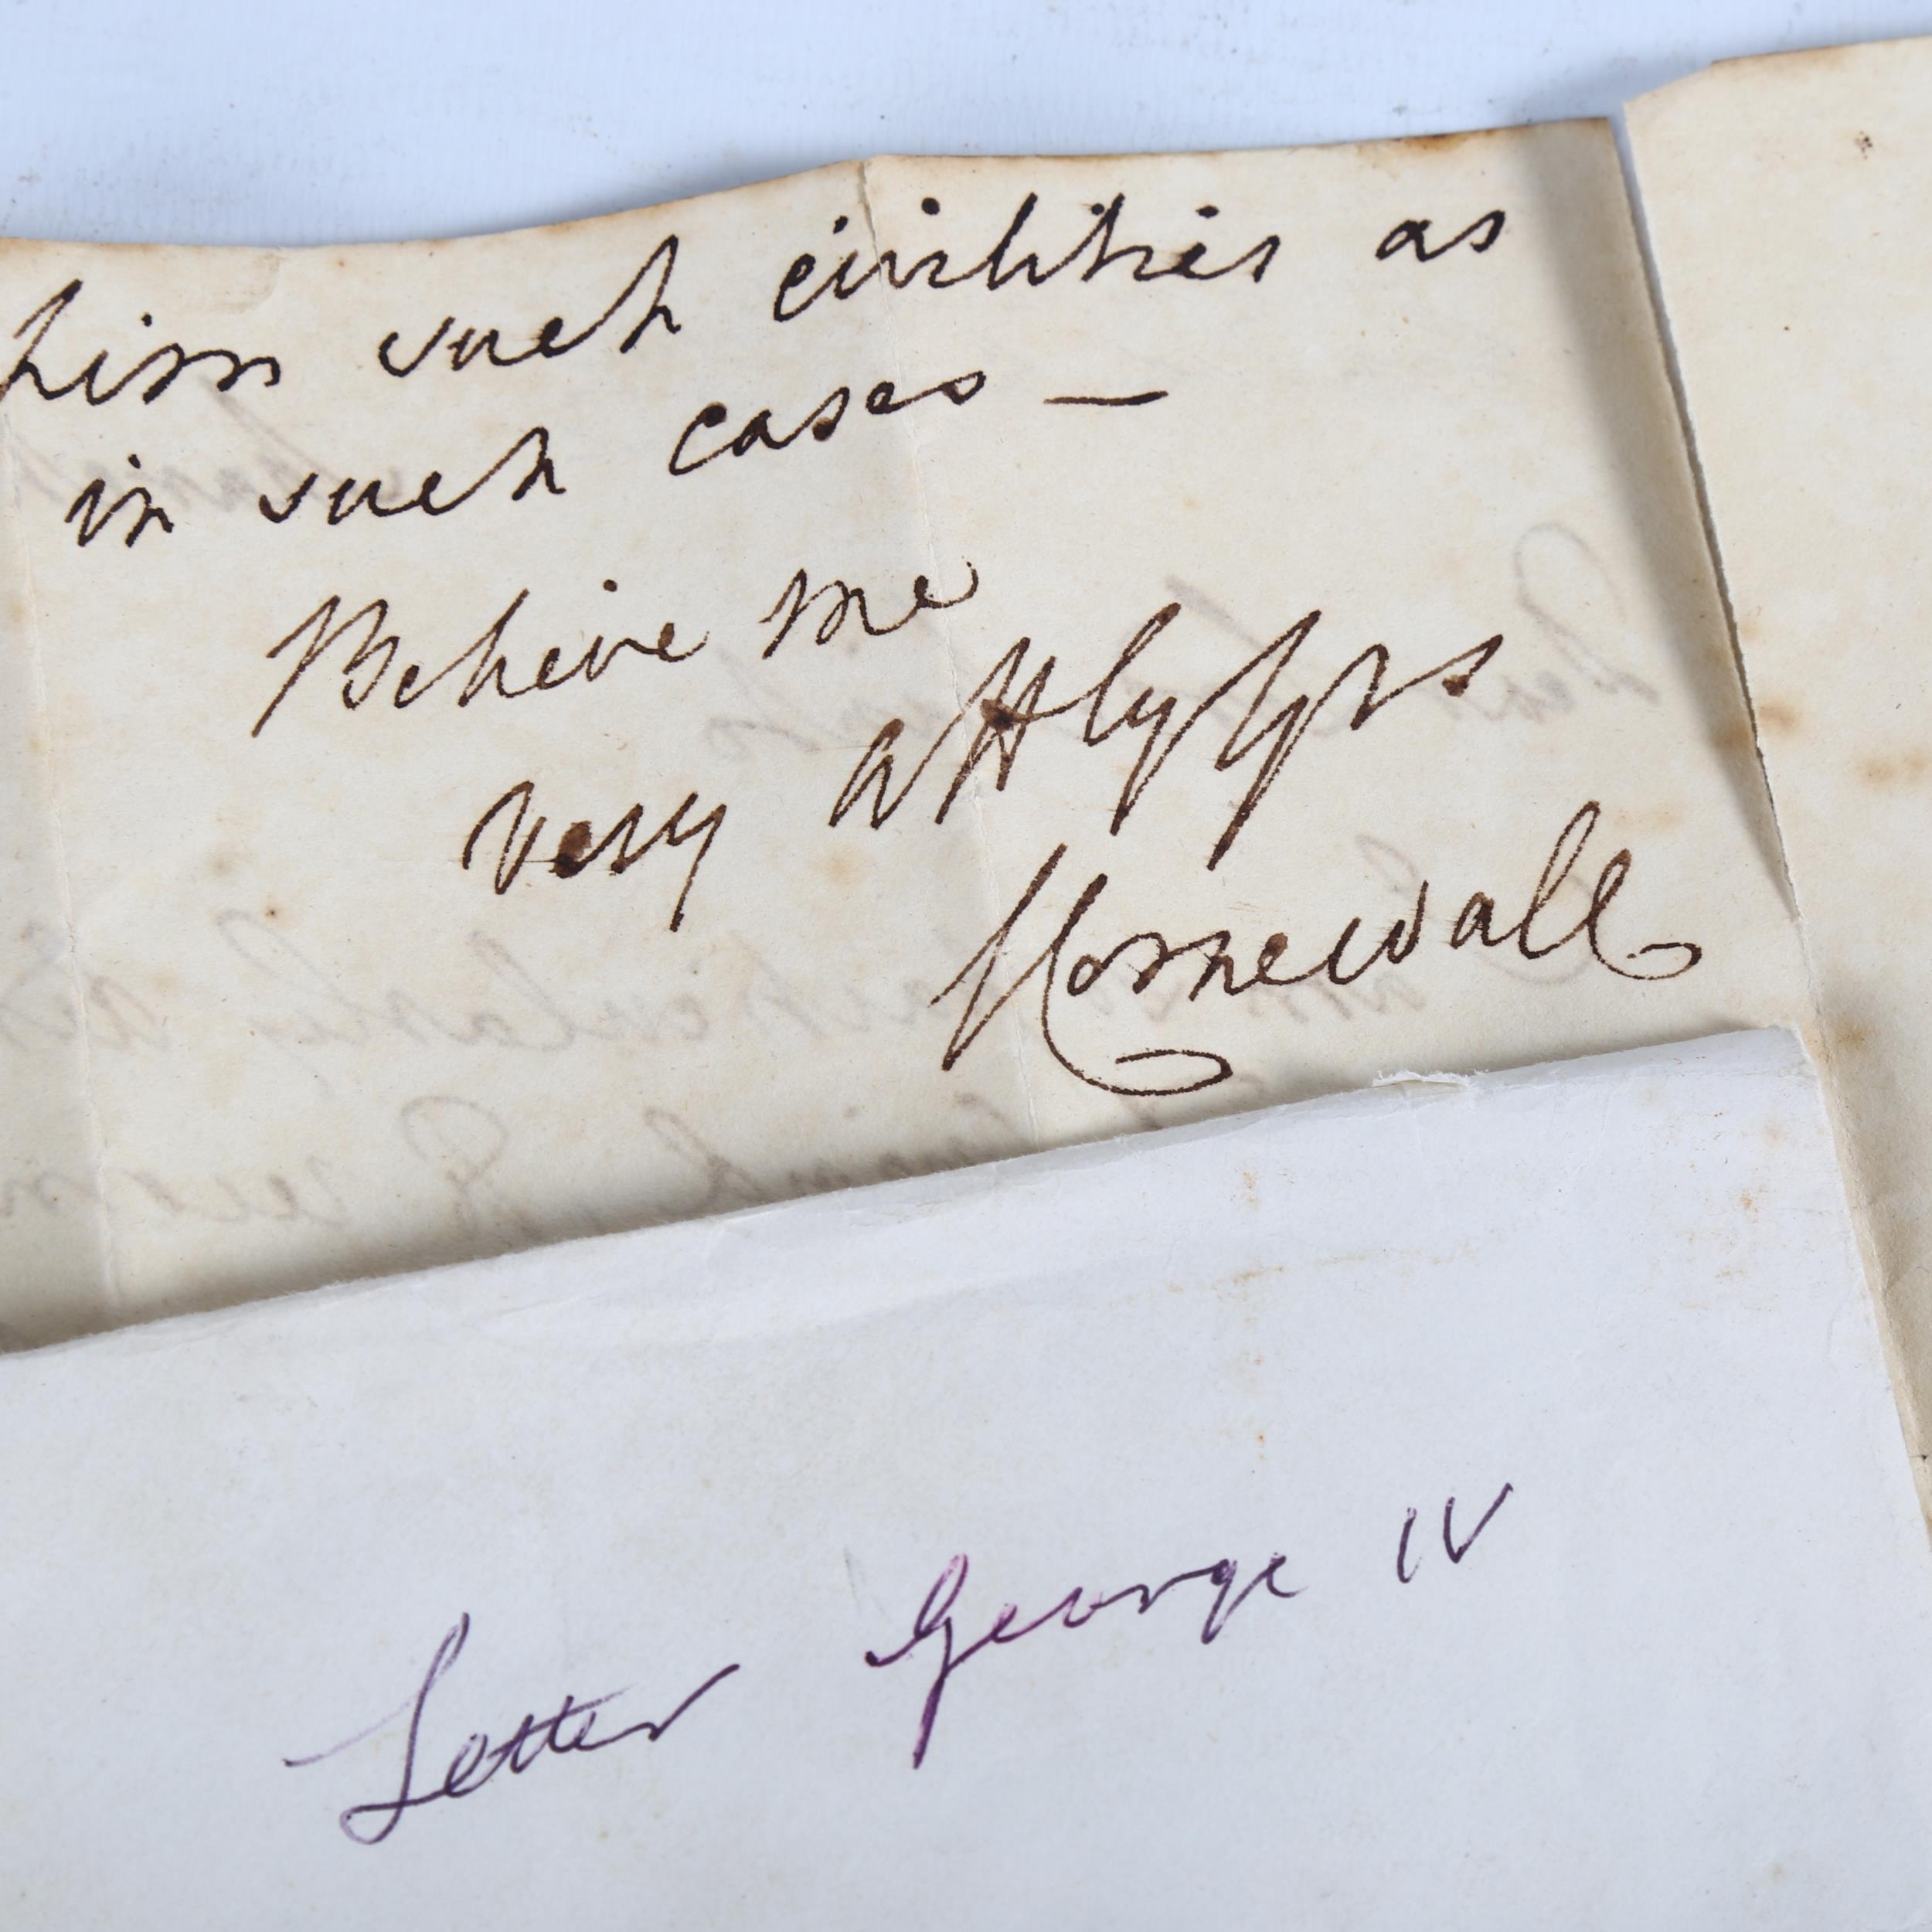 him such civilities as
in such cases —
Believe me
very attly yrs
Cornewall
Letter George IV